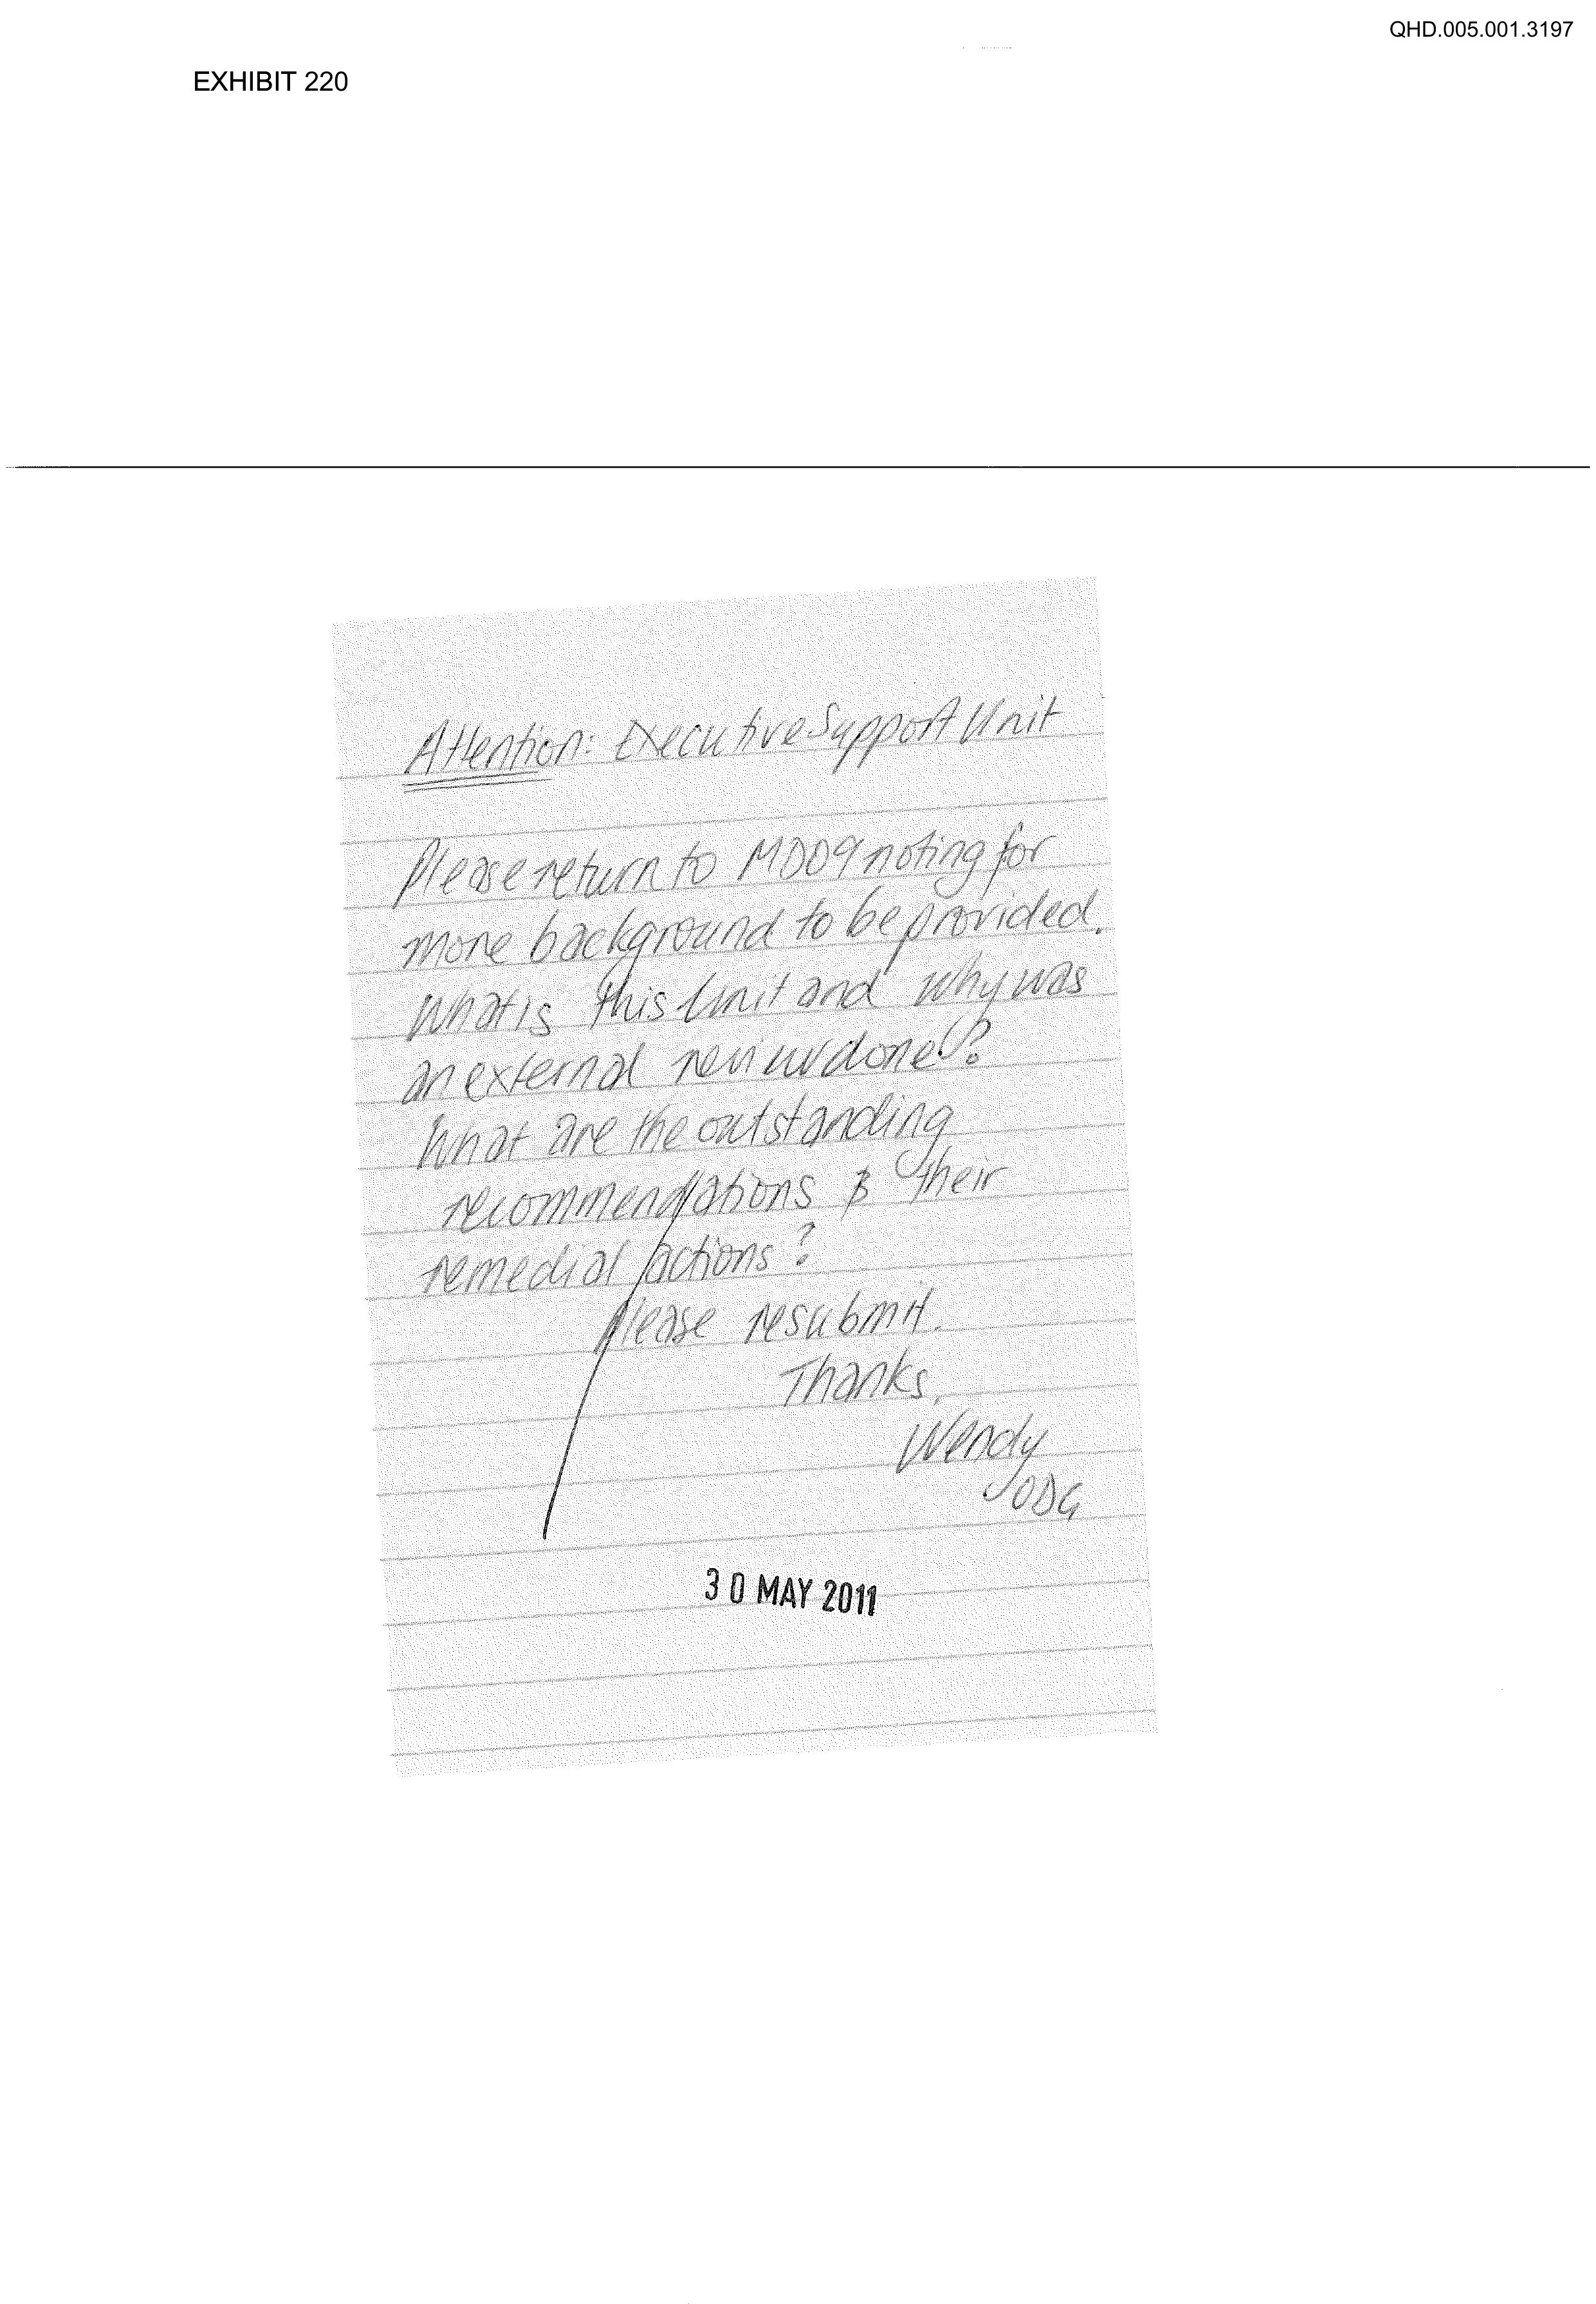 QHD.005.001.3197
EXHIBIT 220
Attention: Executive Support Unit
Please return to MD09 noting for
more background to be provided.
What is this Unit and why was
an external review done?
What are the outstanding
recommendations & their
remedial actions?
Please resubmit.
Thanks,
Wendy
ODG
30 MAY 2011